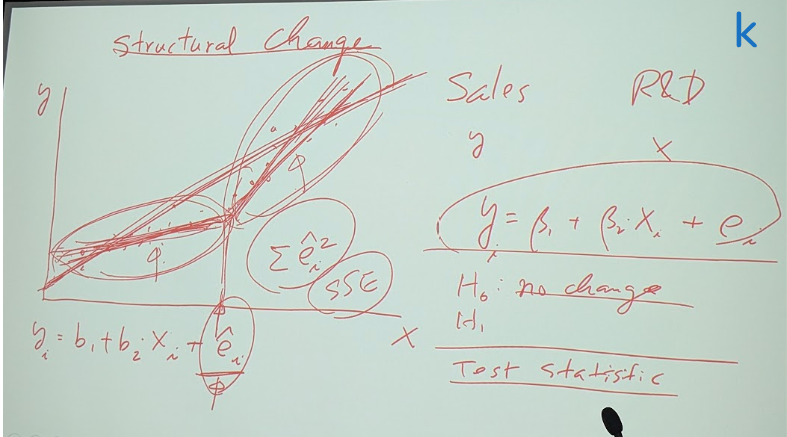 Structural Change
k
y
Sales R&D
y x
φ
φ
Σ ê_i²
SSE
y_i = β₁ + β₂ x_i + e_i
H₀: no change
H₁
x
y_i = b₁ + b₂ x_i + ê_i
Test statistic